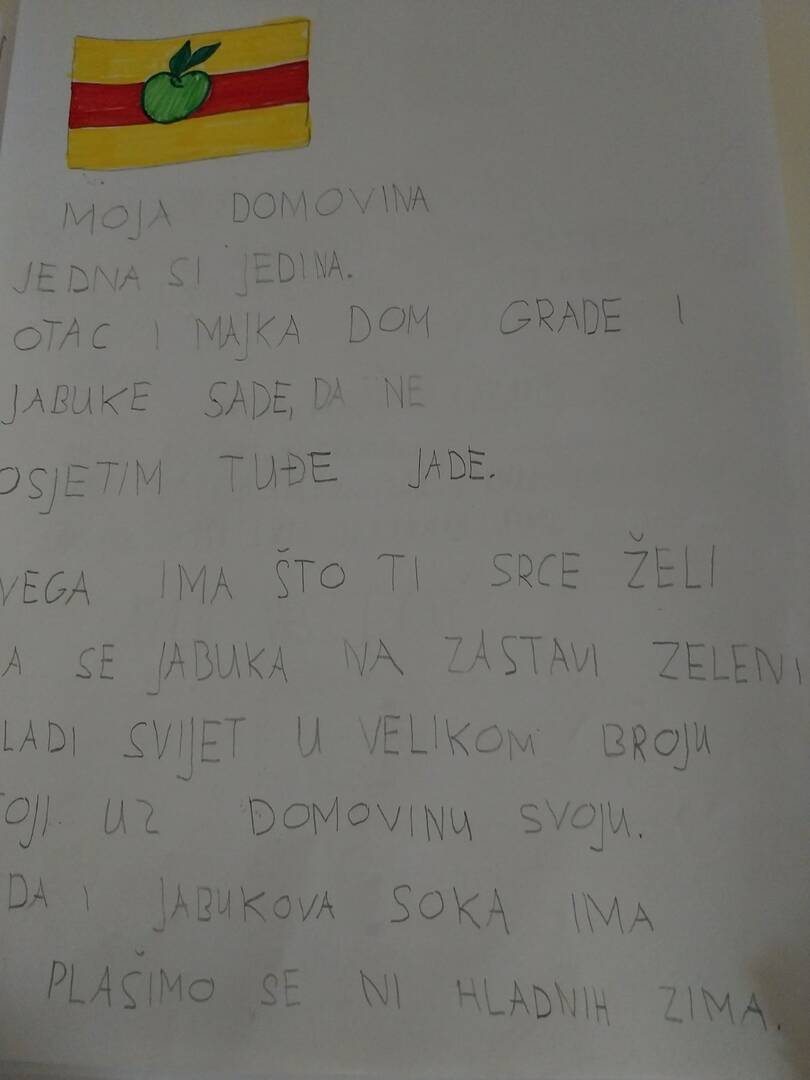 MOJA DOMOVINA
JEDNA SI JEDINA.
OTAC I MAJKA DOM GRADE I
JABUKE SADE, DA NE
OSJETIM TUĐE JADE.
VEGA IMA ŠTO TI SRCE ŽELI
A SE JABUKA NA ZASTAVI ZELENI
LADI SVIJET U VELIKOM BROJU
TOJI UZ DOMOVINU SVOJU.
DA I JABUKOVA SOKA IMA
PLAŠIMO SE NI HLADNIH ZIMA.